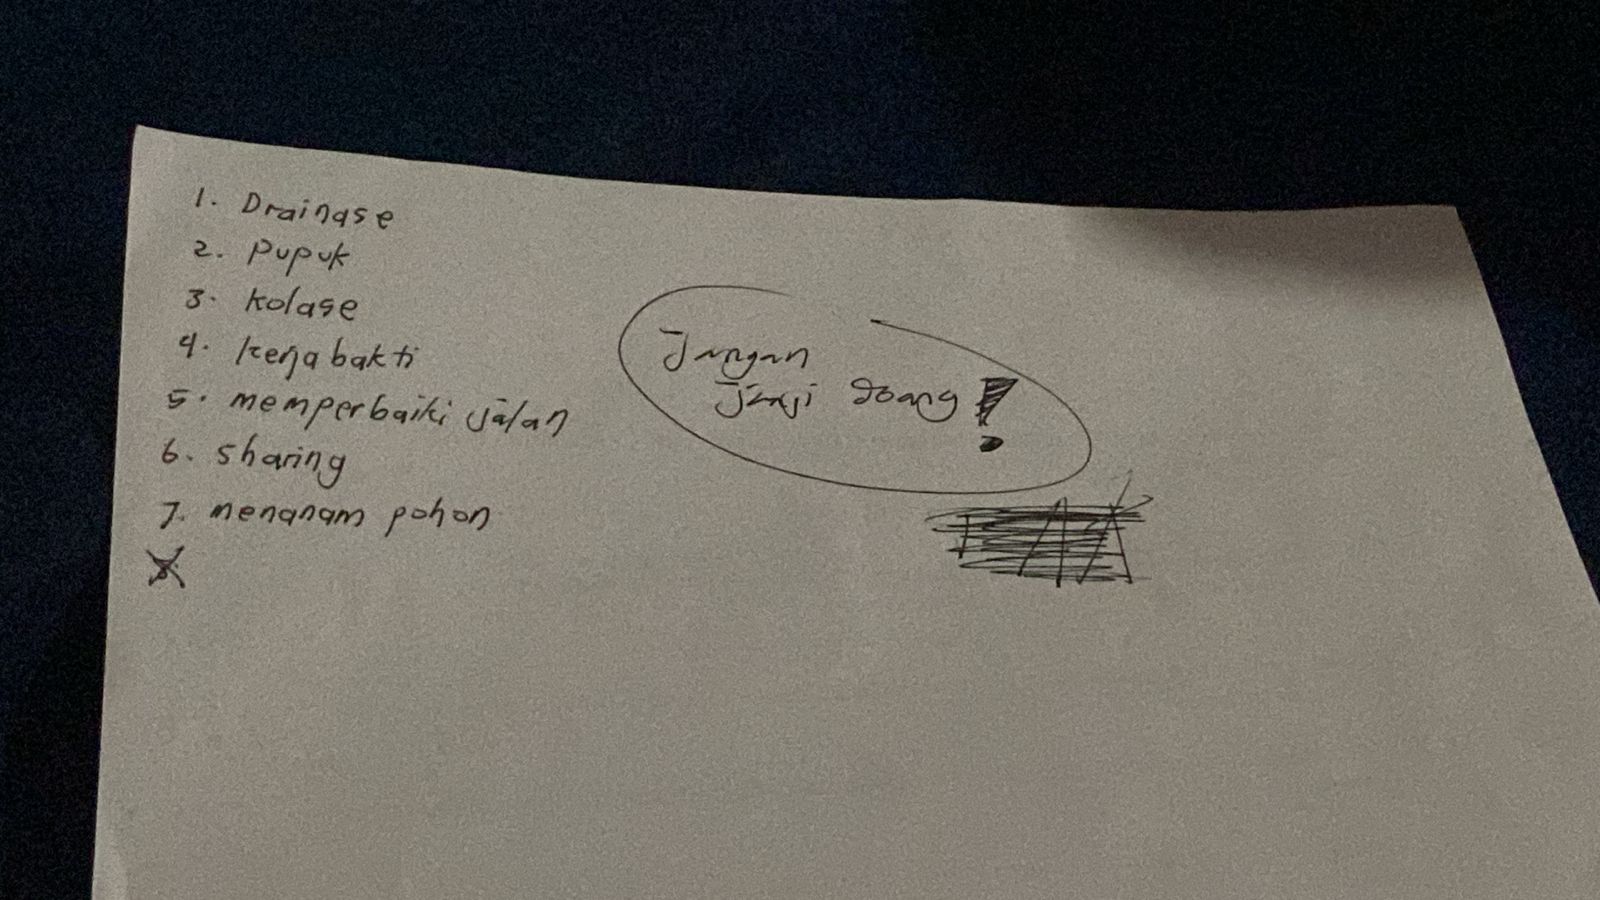 1. Drainase
2. Pupuk
3. Kolase
4. Kerja bakti
5. memperbaiki jalan
6. sharing
7. menanam pohon
Jangan
Janji Doang!